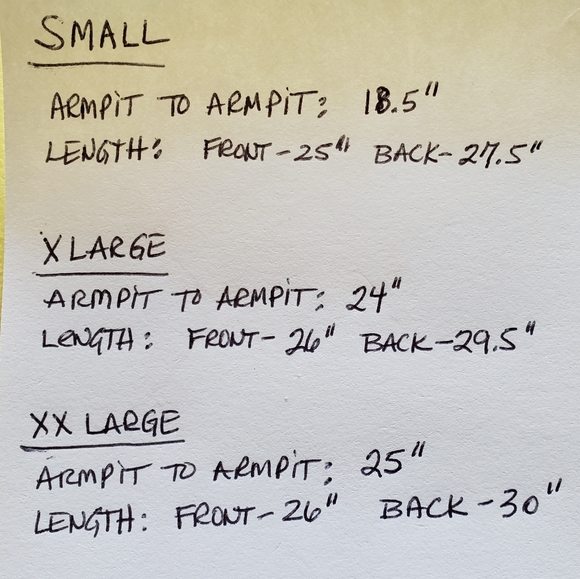 SMALL
ARMPIT TO ARMPIT: 18.5"
LENGTH: FRONT-25" BACK-27.5"
X LARGE
ARMPIT TO ARMPIT: 24"
LENGTH: FRONT-26" BACK-29.5"
XX LARGE
ARMPIT TO ARMPIT: 25"
LENGTH: FRONT-26" BACK-30"